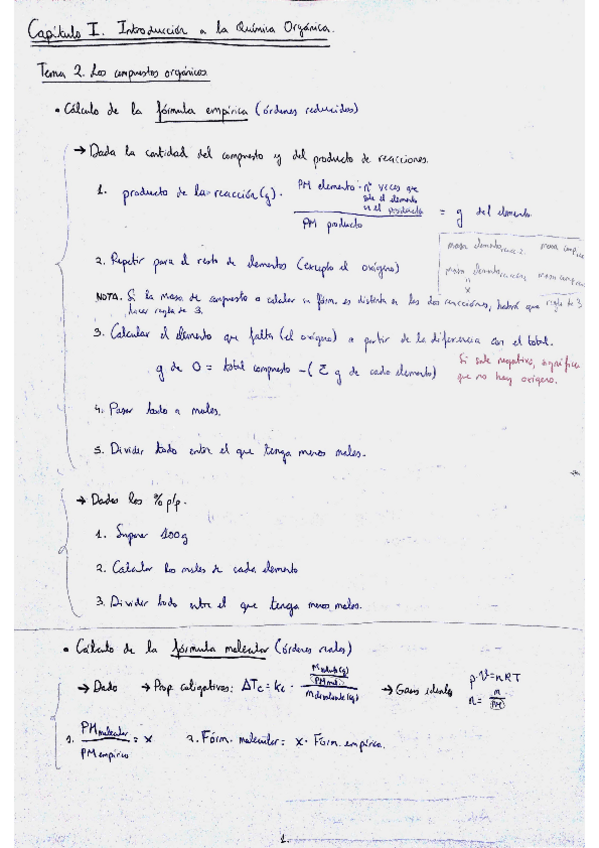 Capítulo I. Introducción a la Química Orgánica.
Tema 2. Los compuestos orgánicos.
• Cálculo de la fórmula empírica (órdenes reducidos)
→ Dada la cantidad del compuesto y del producto de reacciones.
1. producto de la reacción (g) · PM elemento · nº veces que sale el elemento en el producto / PM producto = g del elemento
masa elemento reacc 2 masa comp
masa elemento masa comp
x
2. Repetir para el resto de elementos (excepto el oxígeno)
NOTA. Si la masa de compuesto a calcular su fórm. es distinta en las dos reacciones, habrá que regla de 3
hacer regla de 3.
3. Calcular el elemento que falta (el oxígeno) a partir de la diferencia con el total.
g de O = total compuesto - (Σ g de cada elemento) Si sale negativo, significa
que no hay oxígeno.
4. Pasar todo a moles.
5. Dividir todo entre el que tenga menos moles.
→ Dados los % p/p.
1. Suponer 100g
2. Calcular los moles de cada elemento
3. Dividir todo entre el que tenga menos moles.
• Cálculo de la fórmula molecular (órdenes reales)
→ Dado → Prop. coligativas: ΔTc = kc · m soluto (g) / PM sol. / m disolvente (kg) → Gases ideales p·V=nRT
n = m / PM
1. PM molecular / PM empírico = x 2. Fórm. molecular = x · Fórm. empírica.
1.